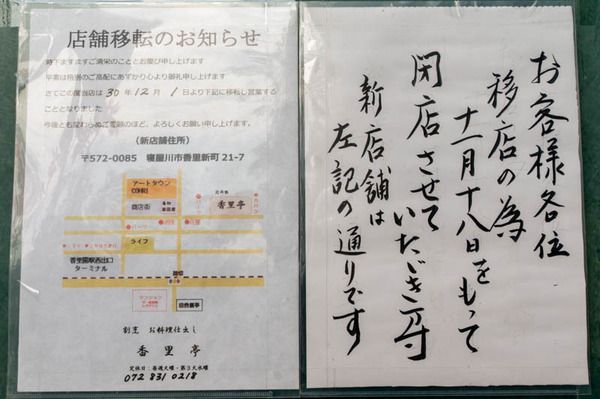 店舗移転のお知らせ
時下ますますご清栄のこととお慶び申し上げます
平素は格別のご高配にあずかり心より御礼申し上げます
さてこの度当店は30年12月1日より下記に移転し営業する
こととなりました
今後とも変わらぬご愛顧のほど、よろしくお願い申し上げます。
(新店舗住所)
〒572-0085 寝屋川市香里新町 21-7
アートタウン
KOHRI
商店街
香里亭
ライフ
香里園駅西出口
ターミナル
踏切
マンション
旧香里亭
割烹 お料理仕出し
香里亭
定休日:毎週火曜・第3火水曜
072 831 0218
お客様各位
移店の為
十一月十八日をもって
閉店させていただき〼
新店舗は
左記の通りです